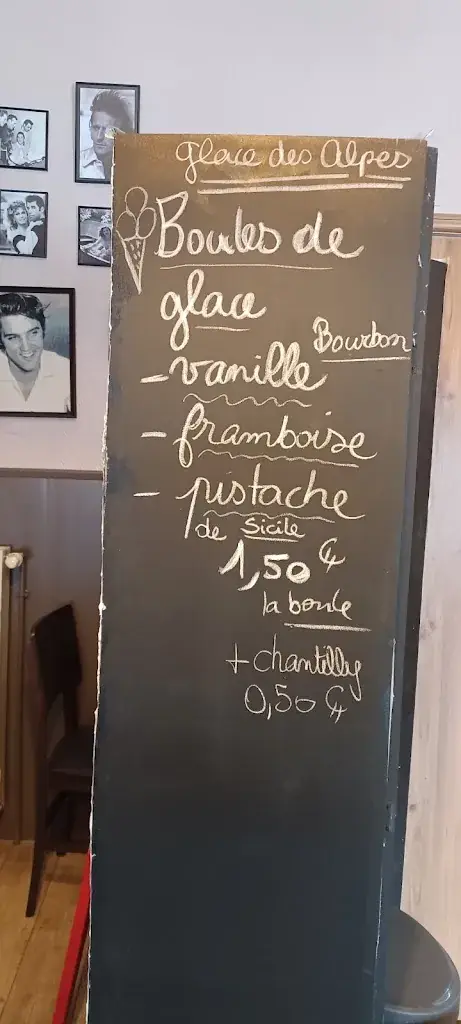 glace des Alpes
Boules de
glace
Bourbon
- vanille
- framboise
- pistache
de Sicile
1,50 €
la boule
+ chantilly
0,50 €